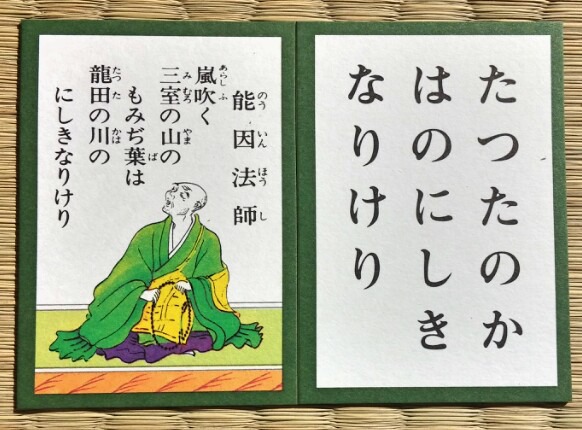 能因法師
のう いん ほう し
嵐吹く
あらし ふ
三室の山の
み むろ やま
もみぢ葉は
ば
龍田の川の
たつ た かは
にしきなりけり
たつたのか
はのにしき
なりけり